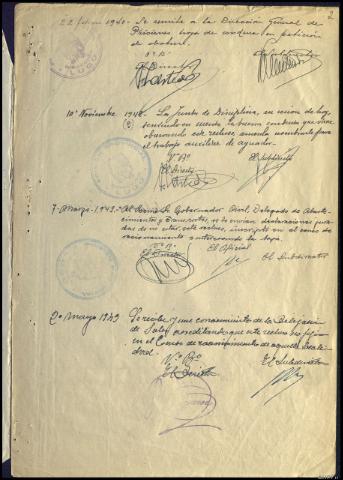 2
22 1940.- Se remite a la Dirección General de
Prisiones hoja de conducta en petición
de
LUGO
Vº Bº
El Director
El Subdirector
10 Noviembre 1942.- La Junta de Disciplina, en sesión de hoy,
teniendo en cuenta la buena conducta que viene
observando este recluso, acuerda nombrarle para
el trabajo auxiliar de aguador.
Vº Bº
El Director
El Subdirector
7-Marzo-1943.- Al Gobernador Civil, Delegado de Abaste-
cimientos y Transportes, se le envían declaraciones jura-
das de no estar, este recluso, inscripto en el censo de
racionamiento interesando la baja.
Vº Bº
El Director
El Oficial
El Subdirector
2º mayo 1943 Se recibe y une de la Delegación
de acreditando que este recluso no figura
en el Censo de racionamiento de aquella locali-
dad.
Vº Bº
El Director
El Subdirector